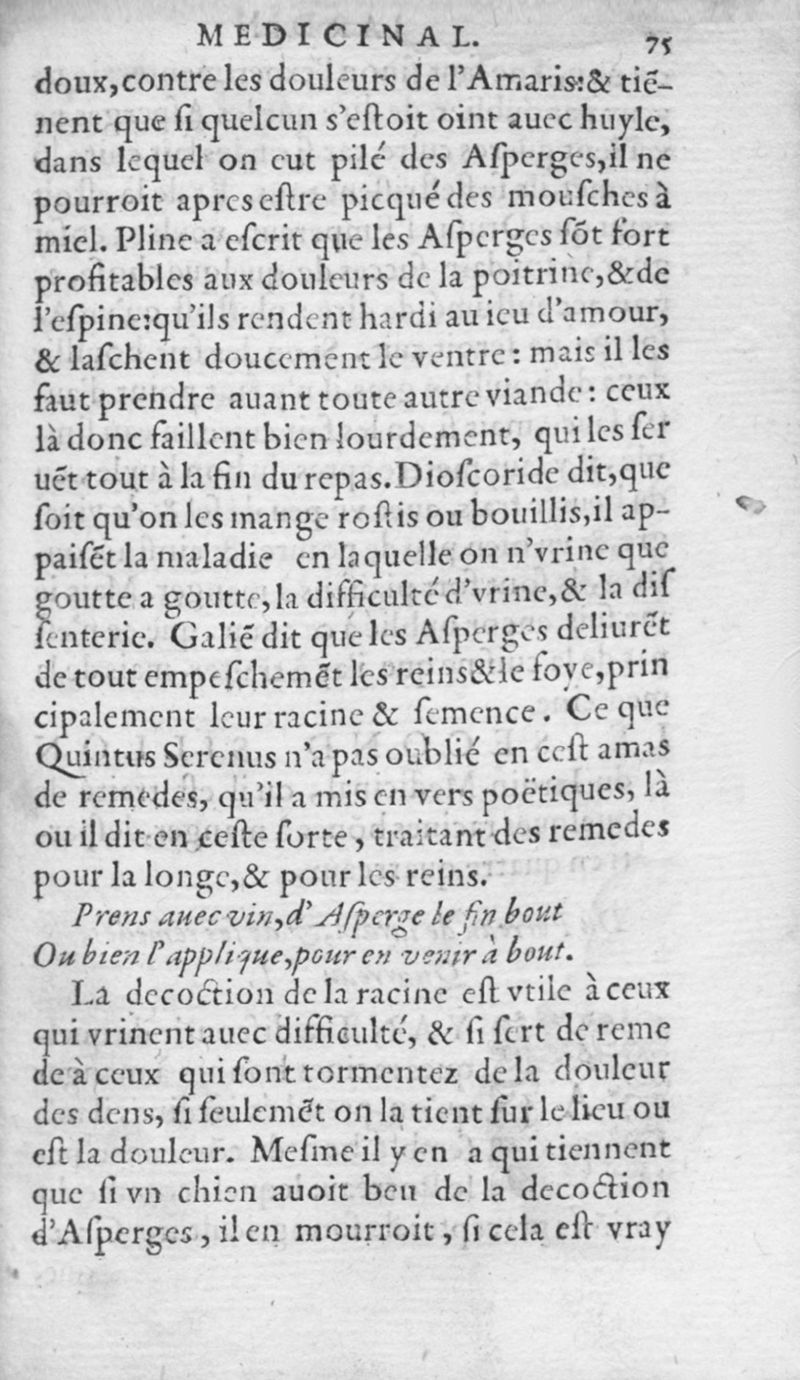 MEDICINAL. 75
doux,contre les douleurs de l'Amaris:& tiē-
nent que ſi quelcun s'eſtoit oint auec huyle,
dans lequel on eut pilé des Aſperges,il ne
pourroit apres eſtre picqué des mouſches à
miel. Pline a eſcrit que les Aſperges ſōt fort
profitables aux douleurs de la poitrine,&de
l'eſpine:qu'ils rendent hardi au ieu d'amour,
& laſchent doucement le ventre: mais il les
faut prendre auant toute autre viande: ceux
là donc faillent bien lourdement, qui les ſer
uēt tout à la fin du repas.Dioſcoride dit,que
ſoit qu'on les mange roſtis ou bouillis,il ap-
paiſēt la maladie en laquelle on n'vrine que
goutte a goutte,la difficulté d'vrine,& la diſ
ſenterie. Galiē dit que les Aſperges deliurēt
de tout empeſchemēt les reins&le foye,prin
cipalement leur racine & ſemence. Ce que
Quintus Serenus n'a pas oublié en ceſt amas
de remedes, qu'il a mis en vers poëtiques, là
ou il dit en ceſte ſorte, traitant des remedes
pour la longe,& pour les reins.
Prens auec vin,d'Aſperge le fin bout
Ou bien l'applique,pour en venir à bout.
La decoction de la racine eſt vtile à ceux
qui vrinent auec difficulté, & ſi ſert de reme
de à ceux qui ſont tormentez de la douleur
des dens, ſi ſeulemēt on la tient ſur le lieu ou
eſt la douleur. Meſme il y en a qui tiennent
que ſi vn chien auoit beu de la decoction
d'Aſperges, il en mourroit, ſi cela eſt vray